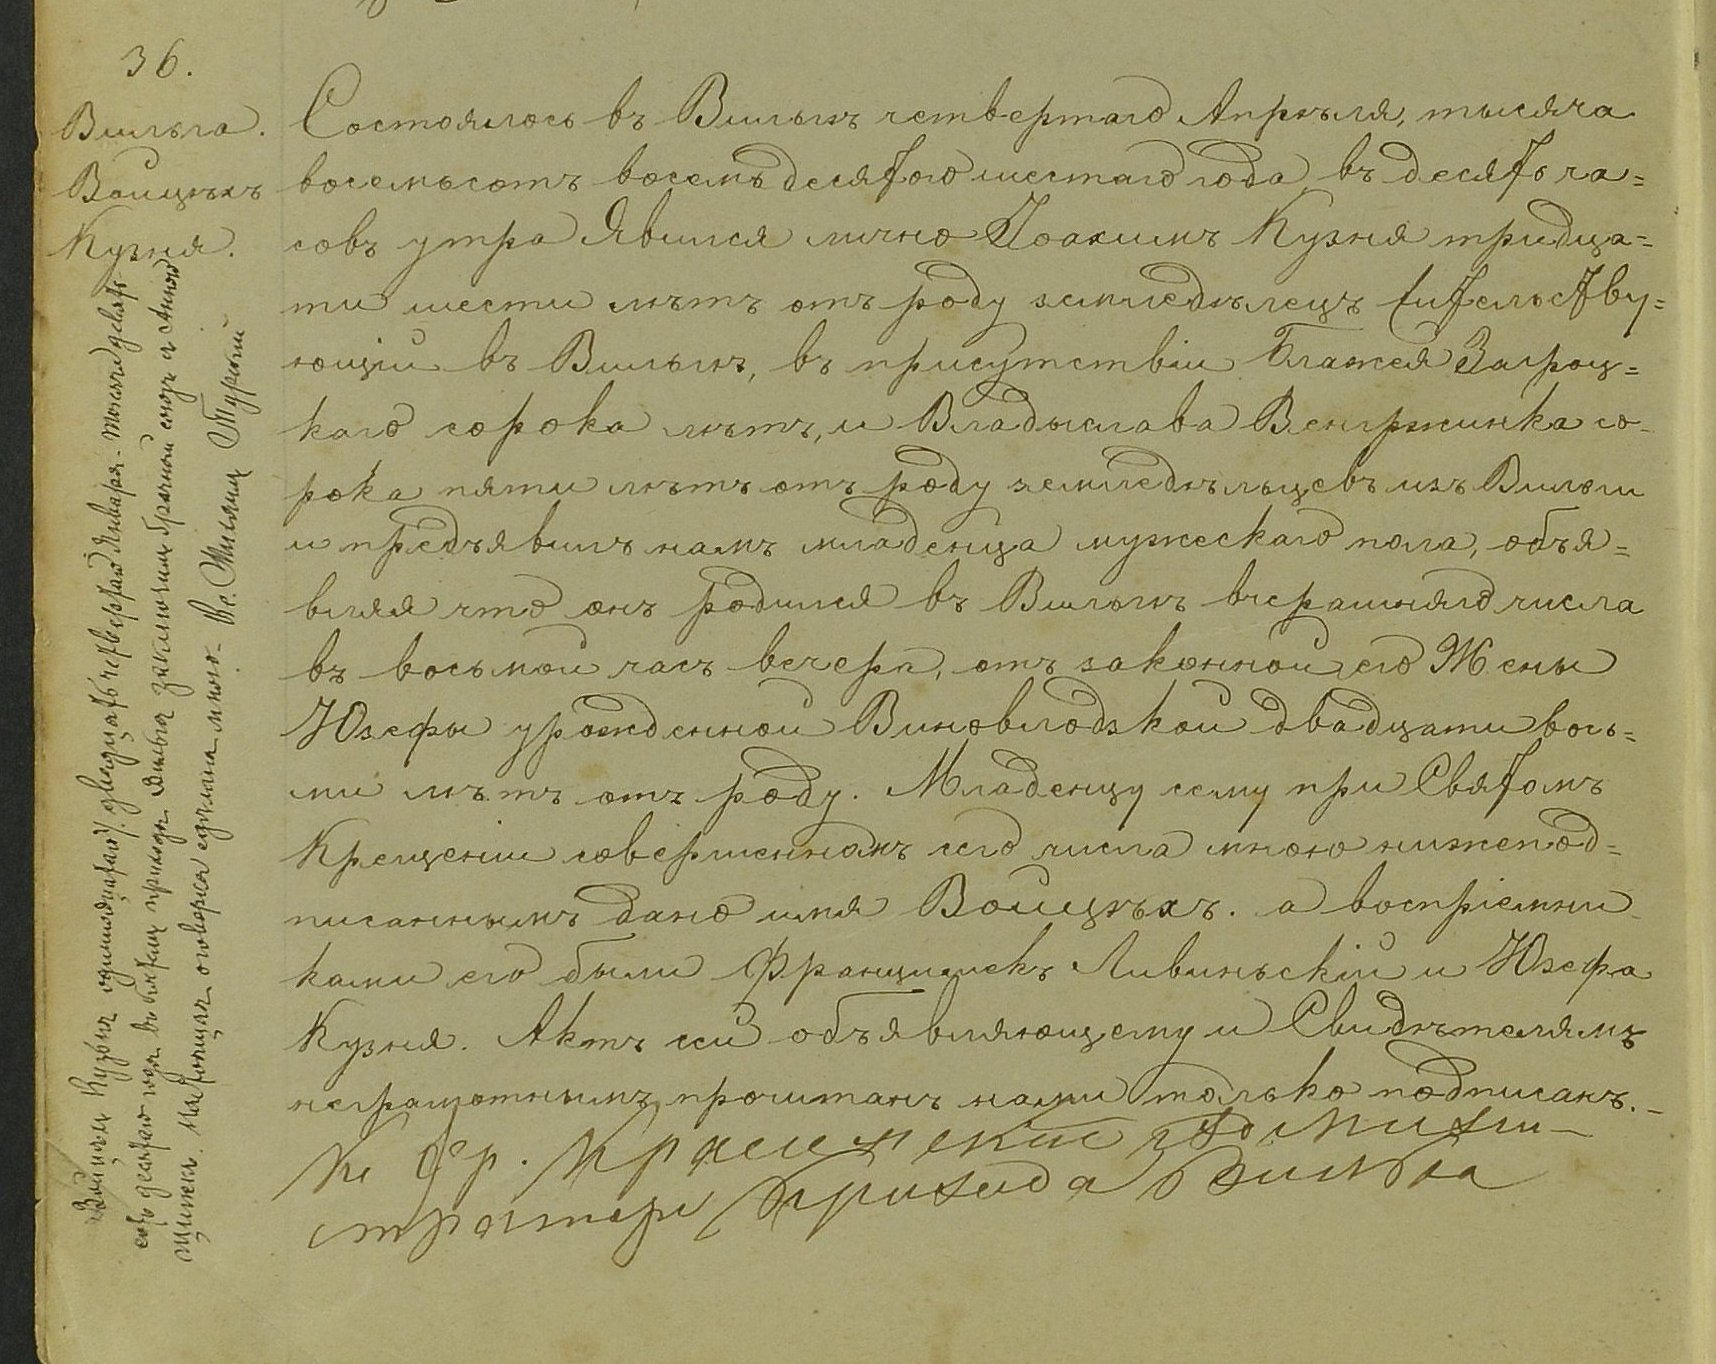 36.
Вильга.
Войцѣхъ
Кузня.
Состоялось въ Вильгѣ четвертаго Апрѣля, тысяча
восемьсотъ восемьдесятого шестаго года, въ десять ча=
совъ утра Явился лично Іоакимъ Кузня тридца=
ти шести лѣтъ отъ роду земледѣлецъ жительству=
ющій въ Вильгѣ, въ присутствіи Блажея Загроц=
каго сорока лѣтъ, и Владыслава Венгржинка со-
рока пяти лѣтъ отъ роду земледѣльцевъ изъ Вильги
и предъявилъ намъ младенца мужескаго пола, объя=
вляя что онъ родился въ Вильгѣ вчерашняго числа
въ восьмой часъ вечера, отъ законной его Жены
Юзефы урожденной Виновлодзкой двадцати вось=
ми лѣтъ отъ роду. Младенцу сему при Святомъ
Крещеніи совершенномъ сего числа мною нижепод=
писаннымъ дано имя Войцѣхъ. а воспріемни
ками его были Францишекъ Ливиньскій и Юзефа
Кузня. Актъ сей объявляющему и Свидѣтелямъ
неграмотнымъ прочитанъ нами только подписанъ.-
Кс Гр. Админи-
страторъ Прихода Вильга
Войцѣхъ Кузня одиннадцатаго/двадцать четвертаго Января тысяча девять
сотъ десятаго года въ приходѣ Вильга заключилъ брачный союзъ съ Анною
Настоящая оговорка сдѣлана мною. Кс.